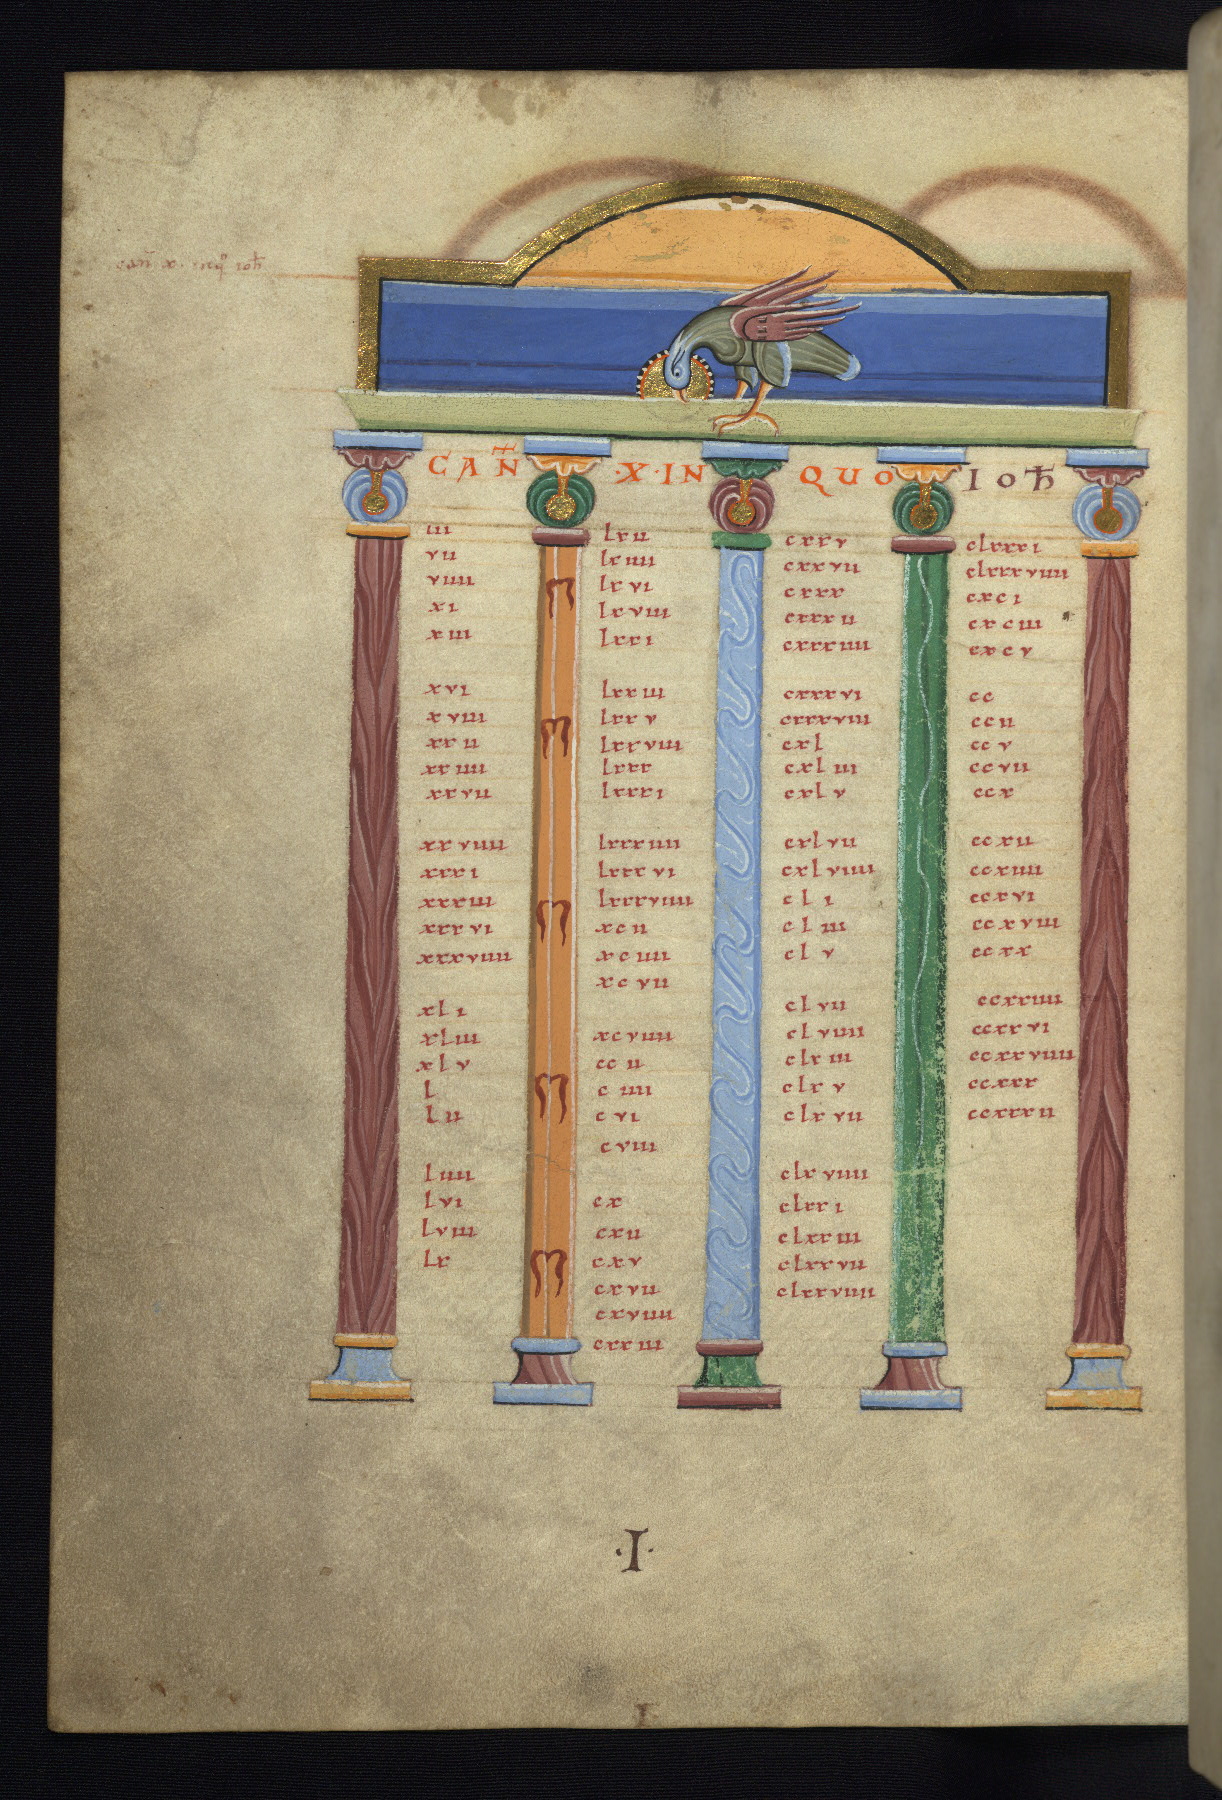 can̄ x. in q° ioħ
CAN̄ ·X·IN QUO IOĦ
iii
vii
viiii
xi
xiii
xvi
xviii
xxii
xxiiii
xxvii
xxviiii
xxxi
xxxiii
xxxvi
xxxviiii
xli
xliii
xlv
l
lii
liiii
lvi
lviii
lx
lxii
lxiiii
lxvi
lxviii
lxxi
lxxiii
lxxv
lxxviii
lxxx
lxxxi
lxxxiiii
lxxxvi
lxxxviiii
xcii
xciiii
xcvii
xcviiii
ccii
ciiii
cvi
cviii
cx
cxii
cxv
cxvii
cxviiii
cxxiii
cxxv
cxxvii
cxxx
cxxxii
cxxxiiii
cxxxvi
cxxxviii
cxl
cxliii
cxlv
cxlvii
cxlviiii
cli
cliii
clv
clvii
clviiii
clxiii
clxv
clxvii
clxviiii
clxxi
clxxiii
clxxvii
clxxviiii
clxxxi
clxxxviiii
cxci
cxciii
cxcv
cc
ccii
ccv
ccvii
ccx
ccxii
ccxiiii
ccxvi
ccxviii
ccxx
ccxxiiii
ccxxvi
ccxxviiii
ccxxx
ccxxxii
·I·
I